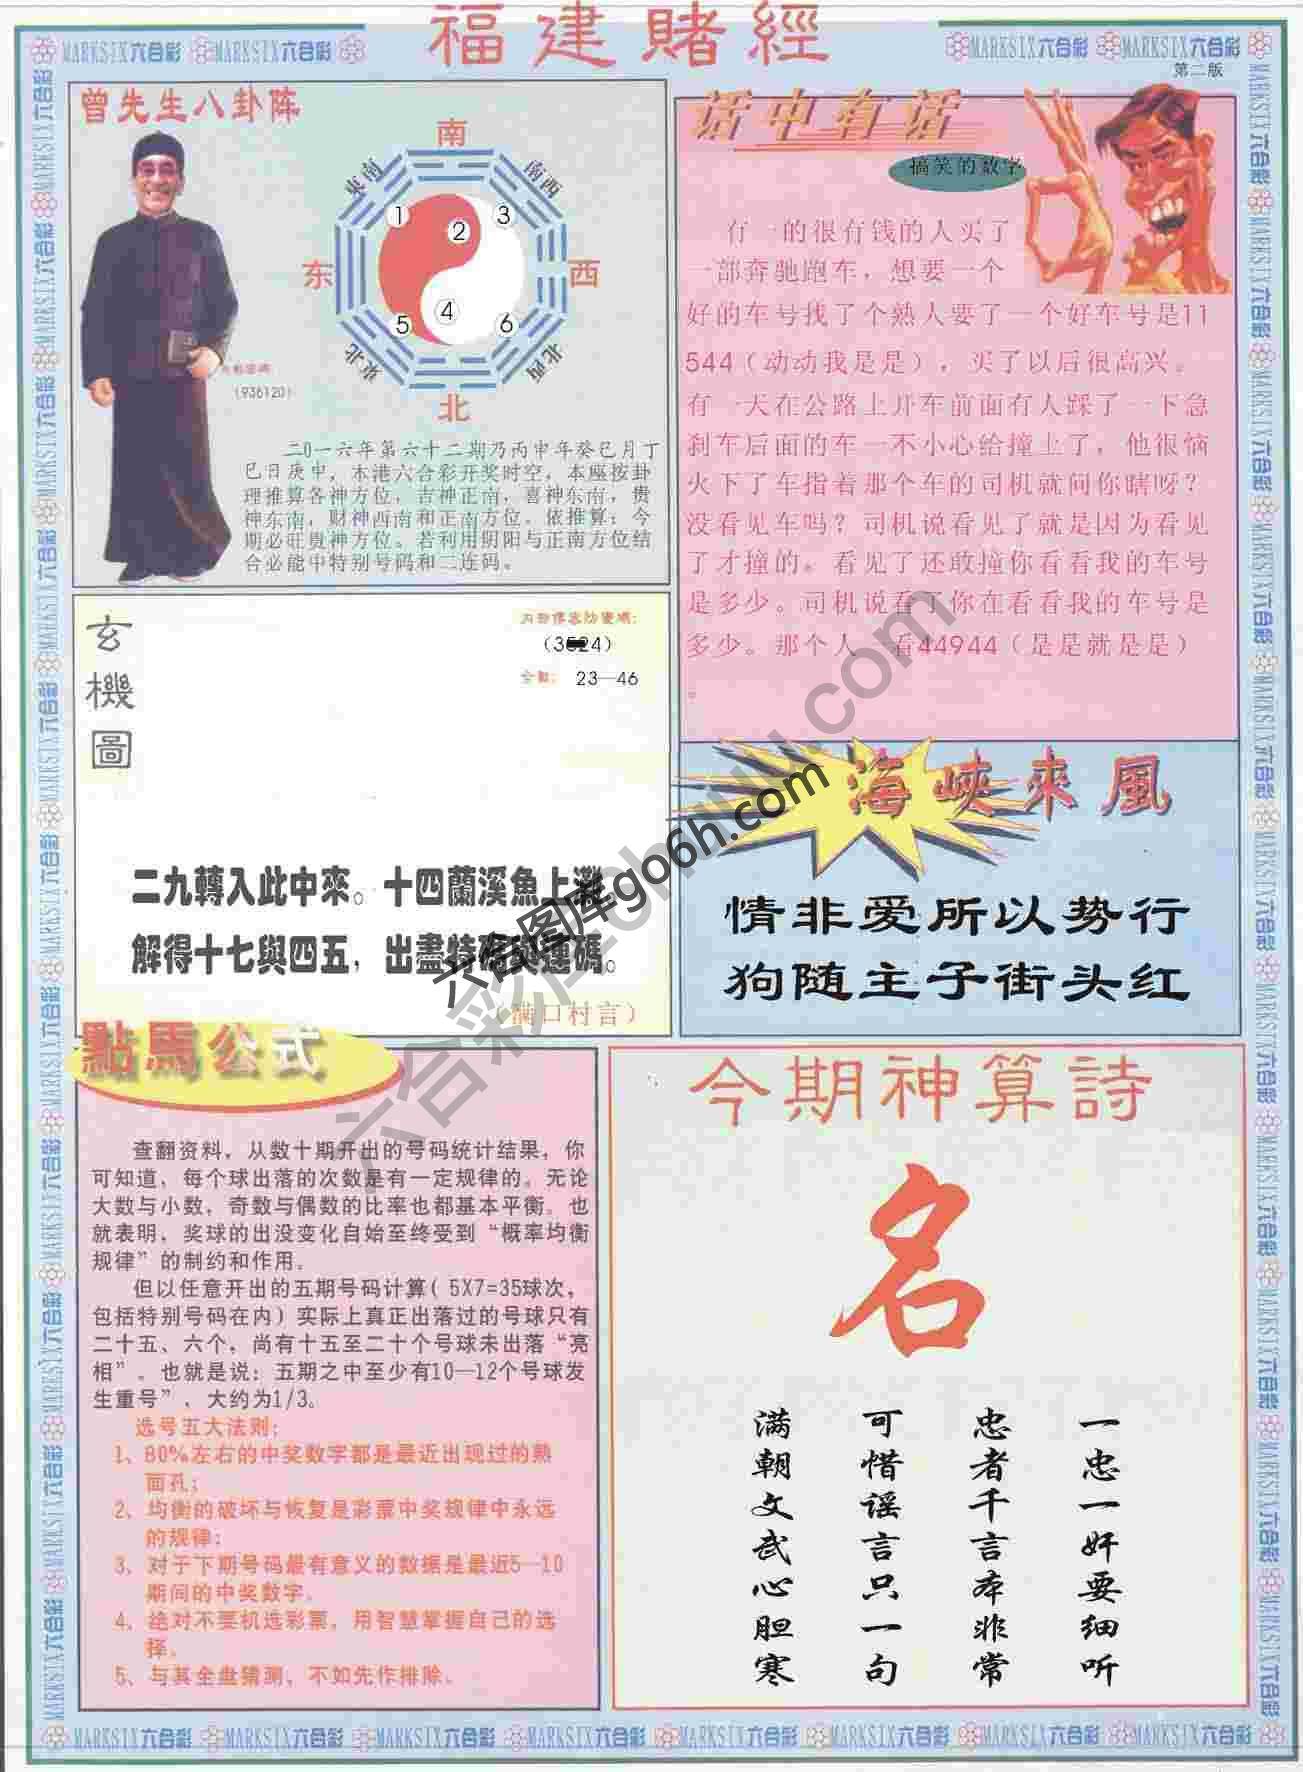 福建賭經
MARKSIX六合彩 MARKSIX六合彩
MARKSIX六合彩 MARKSIX六合彩
第二版
曾先生八卦阵
南
東南
南西
1
2
3
东
西
4
5
6
東北
北西
北
(936120)
二0一六年第六十二期乃丙申年癸巳月丁
巳日庚申，本港六合彩开奖时空，本座按卦
理推算各神方位，吉神正南，喜神东南，贵
神东南，财神西南和正南方位。依推算：今
期必旺贵神方位。若利用阴阳与正南方位结
合必能中特别号码和二连码。
话中有话
搞笑的数学
有一的很有钱的人买了
一部奔驰跑车，想要一个
好的车号找了个熟人要了一个好车号是11
544（动动我是是），买了以后很高兴。
有一天在公路上开车前面有人踩了一下急
刹车后面的车一不小心给撞上了，他很恼
火下了车指着那个车的司机就问你瞎呀？
没看见车吗？司机说看见了就是因为看见
了才撞的。看见了还敢撞你看看我的车号
是多少。司机说看了你在看看我的车号是
多少。那个人一看44944（是是就是是）
。
玄機圖
23—46
二九轉入此中來。十四蘭溪魚上灘
解得十七與四五，出盡特碼與連碼。
海峽來風
情非爱所以势行
狗随主子街头红
點馬公式
查翻资料，从数十期开出的号码统计结果，你
可知道，每个球出落的次数是有一定规律的。无论
大数与小数，奇数与偶数的比率也都基本平衡。也
就表明，奖球的出没变化自始至终受到“概率均衡
规律”的制约和作用。
但以任意开出的五期号码计算( 5X7=35球次，
包括特别号码在内）实际上真正出落过的号球只有
二十五、六个，尚有十五至二十个号球未出落“亮
相”。也就是说：五期之中至少有10—12个号球发
生重号”，大约为1/3。
选号五大法则：
1、80%左右的中奖数字都是最近出现过的熟
面孔；
2、均衡的破坏与恢复是彩票中奖规律中永远
的规律；
3、对于下期号码最有意义的数据是最近5—10
期间的中奖数字。
4、绝对不要机选彩票，用智慧掌握自己的选
择。
5、与其全盘猜测，不如先作排除。
今期神算詩
名
一忠一奸要细听
忠者千言本非常
可惜谣言只一句
满朝文武心胆寒
六合图库go6h.com
MARKSIX六合彩 MARKSIX六合彩 MARKSIX六合彩 MARKSIX六合彩 MARKSIX六合彩 MARKSIX六合彩 MARKSIX六合彩 MARKSIX六合彩